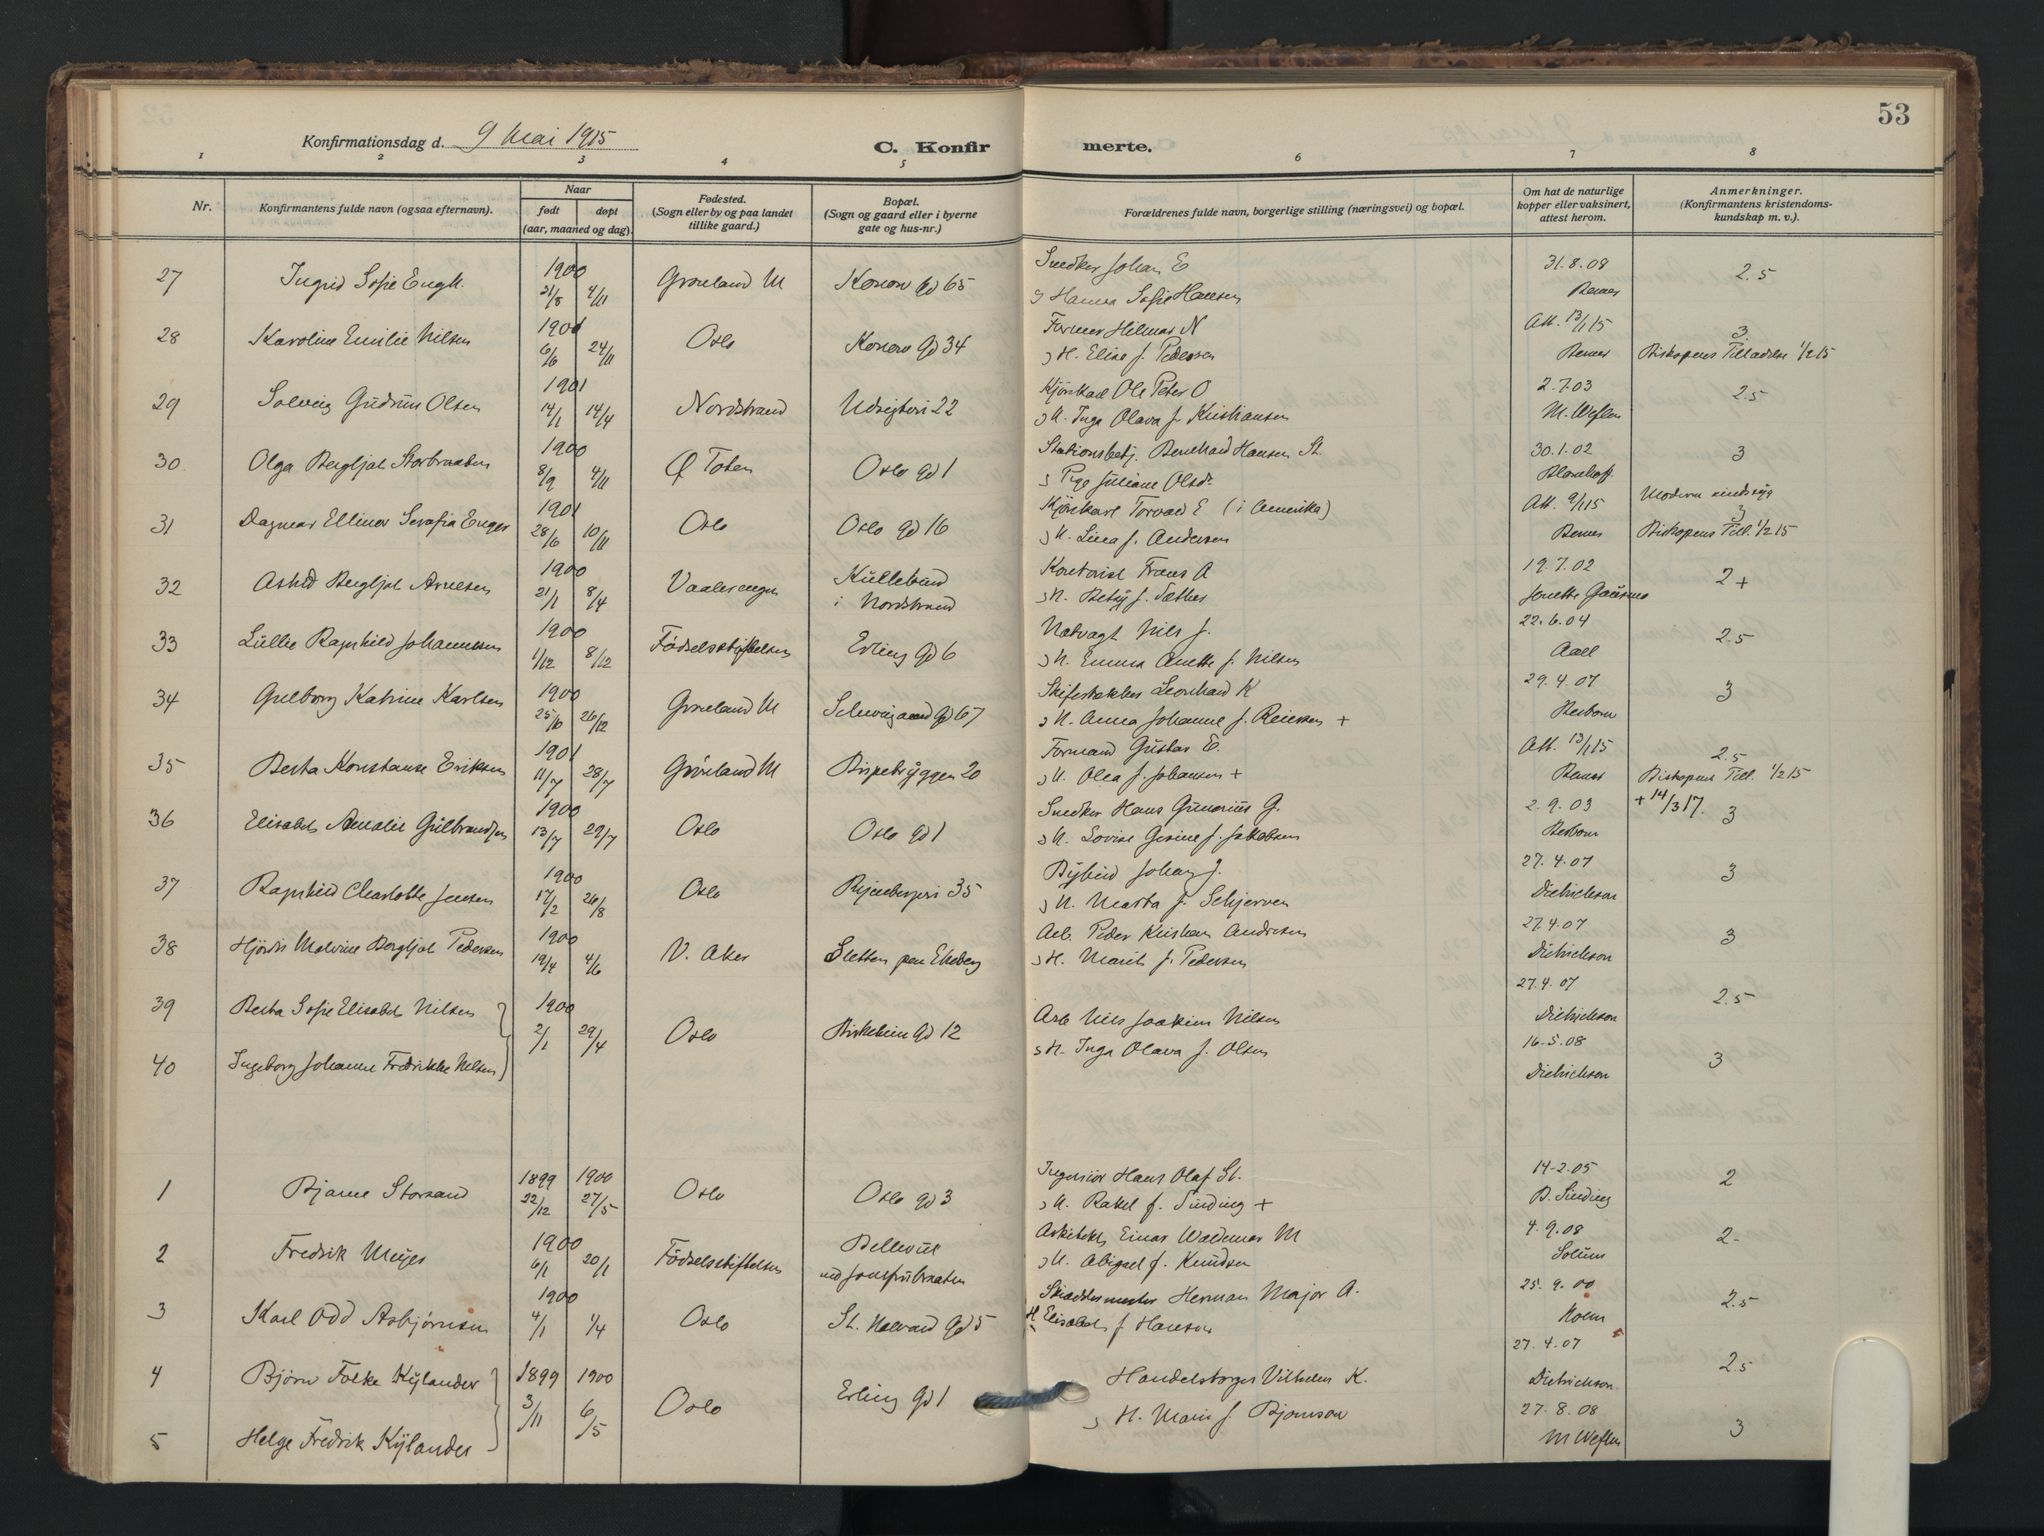 53
Konfirmationsdag d. 9 Mai 1915
C. Konfirmerte.
1 2 3 4 5 6 7 8
Nr.
Konfirmantens fulde navn (ogsaa efternavn).
Naar
født døpt
(aar, maaned og dag).
Fødested.
(Sogn eller by og paa landet
tillike gaard.)
Bopæl.
(Sogn og gaard eller i byerne
gate og hus-nr.)
Forældrenes fulde navn, borgerlige stilling (næringsvei) og bopæl.
Om hat de naturlige
kopper eller vaksinert,
attest herom.
Anmerkninger.
(Konfirmantens kristendoms-
kundskap m. v.).
27 Ingrid Sofie Engh. 1900 21/8 4/11 Grønland M Konow gd 65
Snedker Johan E
H Hanna Sofie Hansen
31.8.08
2.5
28 Karoline Emilie Nilsen 1900 6/6 24/11 Oslo Konow gd 34
Former Hilmar N
H. Elise f. Pedersen
Att. 13/1 15
3
Biskopens Tilladelse 1/2 15
29 Solveig Gudrun Olsen 1901 14/1 14/4 Nordstrand Udsigtvei 22
Kjørekarl Ole Peter O
H. Inga Olava f. Kristiansen
2.7.03
M. Weflen
2.5
30. Olga Bergljot Storbraaten 1900 8/9 4/11 Ø Toten Oslo gd 1
Stationsbetj. Bernhard Hansen St.
Pige Juliane Olsdr.
30.1.02
3
31 Dagmar Ellinor Serafia Enger 1901 28/6 10/11 Oslo Oslo gd 16
Kjørekarl Torvald E (i Amerika)
H. Lina f. Andersen
Att. 9/1 15
Moderen sindssyg
3
Biskopens Till. 1/2 15
32 Astrid Bergljot Arnesen 1900 21/1 8/4 Vaalerengen
i Nordstrand
Kontorist Frans A
H. Betsy f. Sæther
19.7.02
2+
33 Lullie Ragnhild Johannesen 1900 1/12 8/12 Fødselsstiftelsen Erling gd 6
Natvagt Nils J.
H. Emma Anette f. Nilsen
22.6.04
Aall
2.5
34 Gulborg Katrine Karlsen 1900 25/6 26/12 Grønland M Schweigaard gd 67
Leonhard K
H. Anna Johanne f. Reiersen +
29.4.07
3
35 Berta Konstanse Eriksen 1901 11/7 28/7 Grønland M Bispebryggen 20
Formand Gustav E.
H. Olea f. Johansen +
Att. 13/1 15
2.5
Biskopens Till. 1/2 15
36 Elisabeth Amalie Gulbrandsen 1900 13/7 29/7 Oslo Oslo gd 1
Snedker Hans Gunerius G.
H. Lovise Gesine f. Jakobsen
2.9.03
+ 14/3 17.
3
37 Ragnhild Charlotte Jensen 1900 17/2 26/8 Oslo Ryenbergvei 35
Bybud Johan J.
H. Marta f. Schjerven
27.4.07
Dietrichson
3
38 Hjørdis Malvine Bergljot Pedersen 1900 19/4 4/6 V. Aker Sletten paa Ekeberg
Arb. Peder Kristian Andresen
H. Marit f. Pedersen
27.4.07
Dietrichson
3
39 Berta Sofie Elisabeth Nilsen 1900
2/1 29/4 Oslo Birkebein gd 12
Arb. Nils Joakim Nilsen
H. Inga Olava f. Olsen
27.4.07
Dietrichson
2.5
40 Ingeborg Johanne Fredrikke Nilsen
16-5.08
Dietrichson
3
1 Bjarne Storsand 1899 1900
22/12 27/5 Oslo Oslo gd 3
Ingeniør Hans Olaf St.
H. Rakel f. Sinding +
14-2.05
B. Sinding
2
2 Fredrik Meyer 1900 6/1 20/1 Fødselsstiftelsen Bellevue
ved Jomfrubraaten
Arkitekt Einar Waldemar M
H. Abigael f. Knudsen
4.9.08
Solum
2-
3 Karl Odd Asbjørnsen 1900 4/1 1/4 Oslo St. Halvard gd 5
Skræddermester Herman Major A.
H Elisabeth f Hansen
25.9.00
Holm
2.5
4 Bjørn Folke Kylander 1899 1900
3/11 6/5 Oslo Erling gd 1
Handelsborger Vilhelm K.
H. Marie f. Bjørnson
27.4.07
Dietrichson
2.5
5 Helge Fredrik Kylander
27.8.08
M Weflen
3